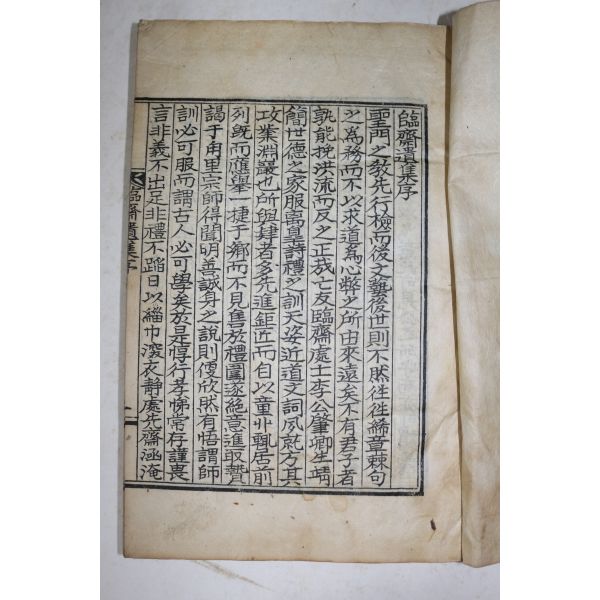 臨齋遺集序
聖門之敎先行檢而後文藝後世則不然徃徃絺章棘句
之爲務而不以求道爲心弊之所由來遠矣不有君子者
孰能挽洪流而反之正哉亡友臨齋處士李公肇卿生靖
簡世德之家服离皇詩禮之訓天姿近道文詞夙就方其
攻業淵嚴也所與肄者多先進鉅匠而自以童丱輒居前
列旣而應擧一捷于鄕而不見售於禮圍遂絶意進取贄
謁于甪里宗師得聞明善誠身之說則便欣然有悟謂師
訓必可服而謂古人必可學矣於是惇行孝悌常存謹喪
言非義不出足非禮不蹈日以緇巾深衣静處先齋涵淹
臨齋遺集序
一